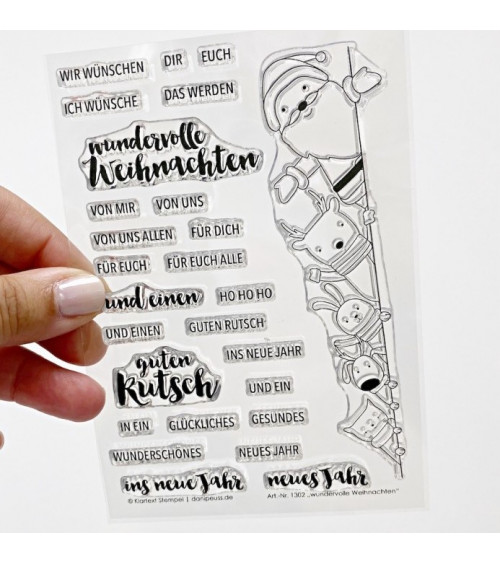 WIR WÜNSCHEN DIR EUCH
ICH WÜNSCHE DAS WERDEN
wundervolle
Weihnachten
VON MIR VON UNS
VON UNS ALLEN FÜR DICH
FÜR EUCH FÜR EUCH ALLE
und einen HO HO HO
UND EINEN GUTEN RUTSCH
guten
Rutsch
INS NEUE JAHR
UND EIN
IN EIN GLÜCKLICHES GESUNDES
WUNDERSCHÖNES NEUES JAHR
ins neue Jahr neues Jahr
© Klartext Stempel | danipeuss.de Art.-Nr. 1302 „wundervolle Weihnachten"